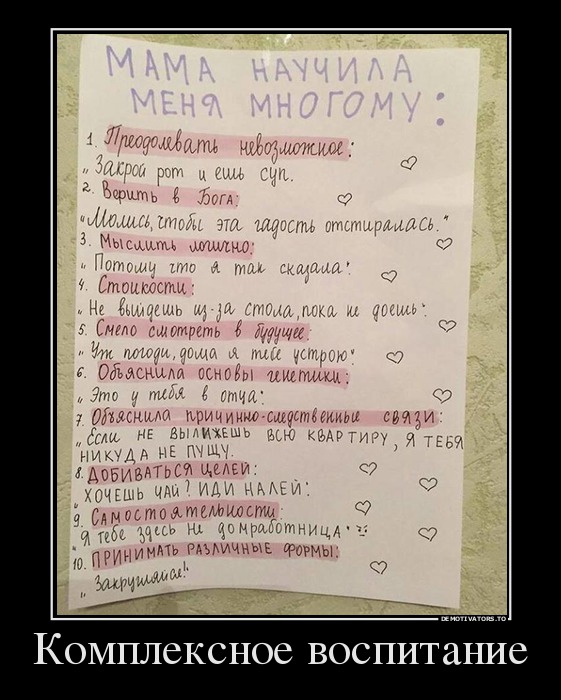 МАМА НАУЧИЛА
МЕНЯ МНОГОМУ:
1. Преодолевать невозможное:
„Закрой рот и ешь суп.
2. Верить в Бога:
„Молись, чтобы эта гадость отстиралась."
3. Мыслить логично:
„Потому что я так сказала".
4. Стойкости:
„Не выйдешь из-за стола, пока не доешь".
5. Смело смотреть в будущее:
„Уж погоди, дома я тебе устрою"
6. Объяснила основы генетики:
„Это у тебя в отца".
7. Объяснила причинно-следственные связи:
„Если не вылижешь всю квартиру, я тебя
никуда не пущу.
8. Добиваться целей:
„Хочешь чай? Иди налей".
9. Самостоятельности:
„Я тебе здесь не домработница"
10. Принимать различные формы:
„Закругляйся!"
DEMOTIVATORS.TO
Комплексное воспитание